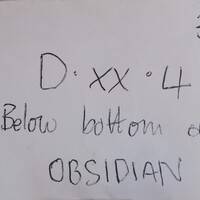 D·XX·4
Below bottom
OBSIDIAN